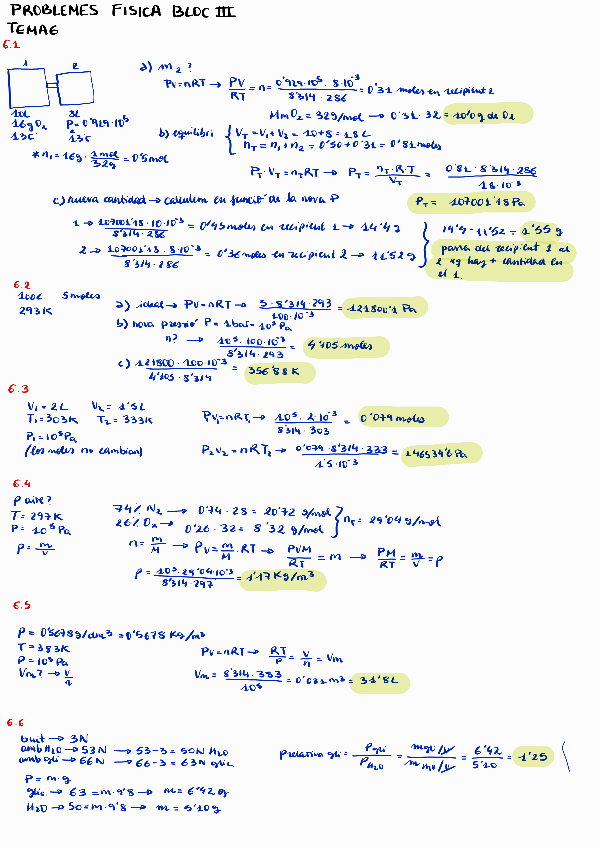 PROBLEMES FISICA BLOC III
TEMA6
6.1
1 2
10L 8L
16g O2 P = 0'929·10⁵
13ºC 13ºC
* n1 = 16g · 1mol/32g = 0'5mol
a) m2?
PV = nRT → PV/RT = n = 0'929·10⁵·8·10⁻³ / 8'314·286 = 0'31 moles en recipient 2
Mm O2 = 32g/mol → 0'31·32 = 10'0g de O2
b) equilibri { VT = V1+V2 = 10+8 = 18L
nT = n1+n2 = 0'50+0'31 = 0'81 moles
PT·VT = nTRT → PT = nT·R·T / VT = 0'81·8'314·286 / 18·10⁻³
PT = 107001'18 Pa
c) nueva cantidad → calculem en funció de la nova P
1 → 107001'18·10·10⁻³ / 8'314·286 = 0'45 moles en recipient 1 → 14'4g
2 → 107001'18·8·10⁻³ / 8'314·286 = 0'36 moles en recipient 2 → 11'52g
} 14'4-11'52 = 1'55g
passa del recipient 1 al
2 xq hay + cantidad en
el 1.
6.2
100L 5 moles
293K
a) ideal → PV = nRT → 5·8'314·293 / 100·10⁻³ = 121800'1 Pa
b) nova pressió P = 1bar = 10⁵Pa
n? → 10⁵·100·10⁻³ / 8'314·293 = 4'105 moles
c) 121800·100·10⁻³ / 4'105·8'314 = 356'88K
6.3
V1 = 2L V2 = 1'5L
T1 = 303K T2 = 333K
P1 = 10⁵Pa
(los moles no cambian)
PV1 = nRT1 → 10⁵·2·10⁻³ / 8'314·303 = 0'079 moles
P2V2 = nRT2 → 0'079·8'314·333 / 1'5·10⁻³ = 146534'6 Pa
6.4
ρ aire?
T = 297K
P = 10⁵Pa
ρ = m/V
74% N2 → 0'74·28 = 20'72 g/mol
26% O2 → 0'26·32 = 8'32 g/mol
} nT = 29'04 g/mol
n = m/M → PV = m/M · RT → PVM/RT = m → PM/RT = m/V = ρ
ρ = 10⁵·29'04·10⁻³ / 8'314·297 = 1'17 Kg/m³
6.5
ρ = 0'5678g/dm³ = 0'5678 Kg/m³
T = 383K
P = 10⁵Pa
Vm? → V/n
PV = nRT → RT/P = V/n = Vm
Vm = 8'314·383 / 10⁵ = 0'031m³ = 31'8L
6.6
buit → 3N
amb H2O → 53N → 53-3 = 50N H2O
amb gli → 66N → 66-3 = 63N glic.
P = m·g
glic. → 63 = m·9'8 → m = 6'42g
H2O → 50 = m·9'8 → m = 5'10g
ρ relativa gli = ρgli / ρH2O = mgli/V / mH2O/V = 6'42 / 5'10 = 1'25